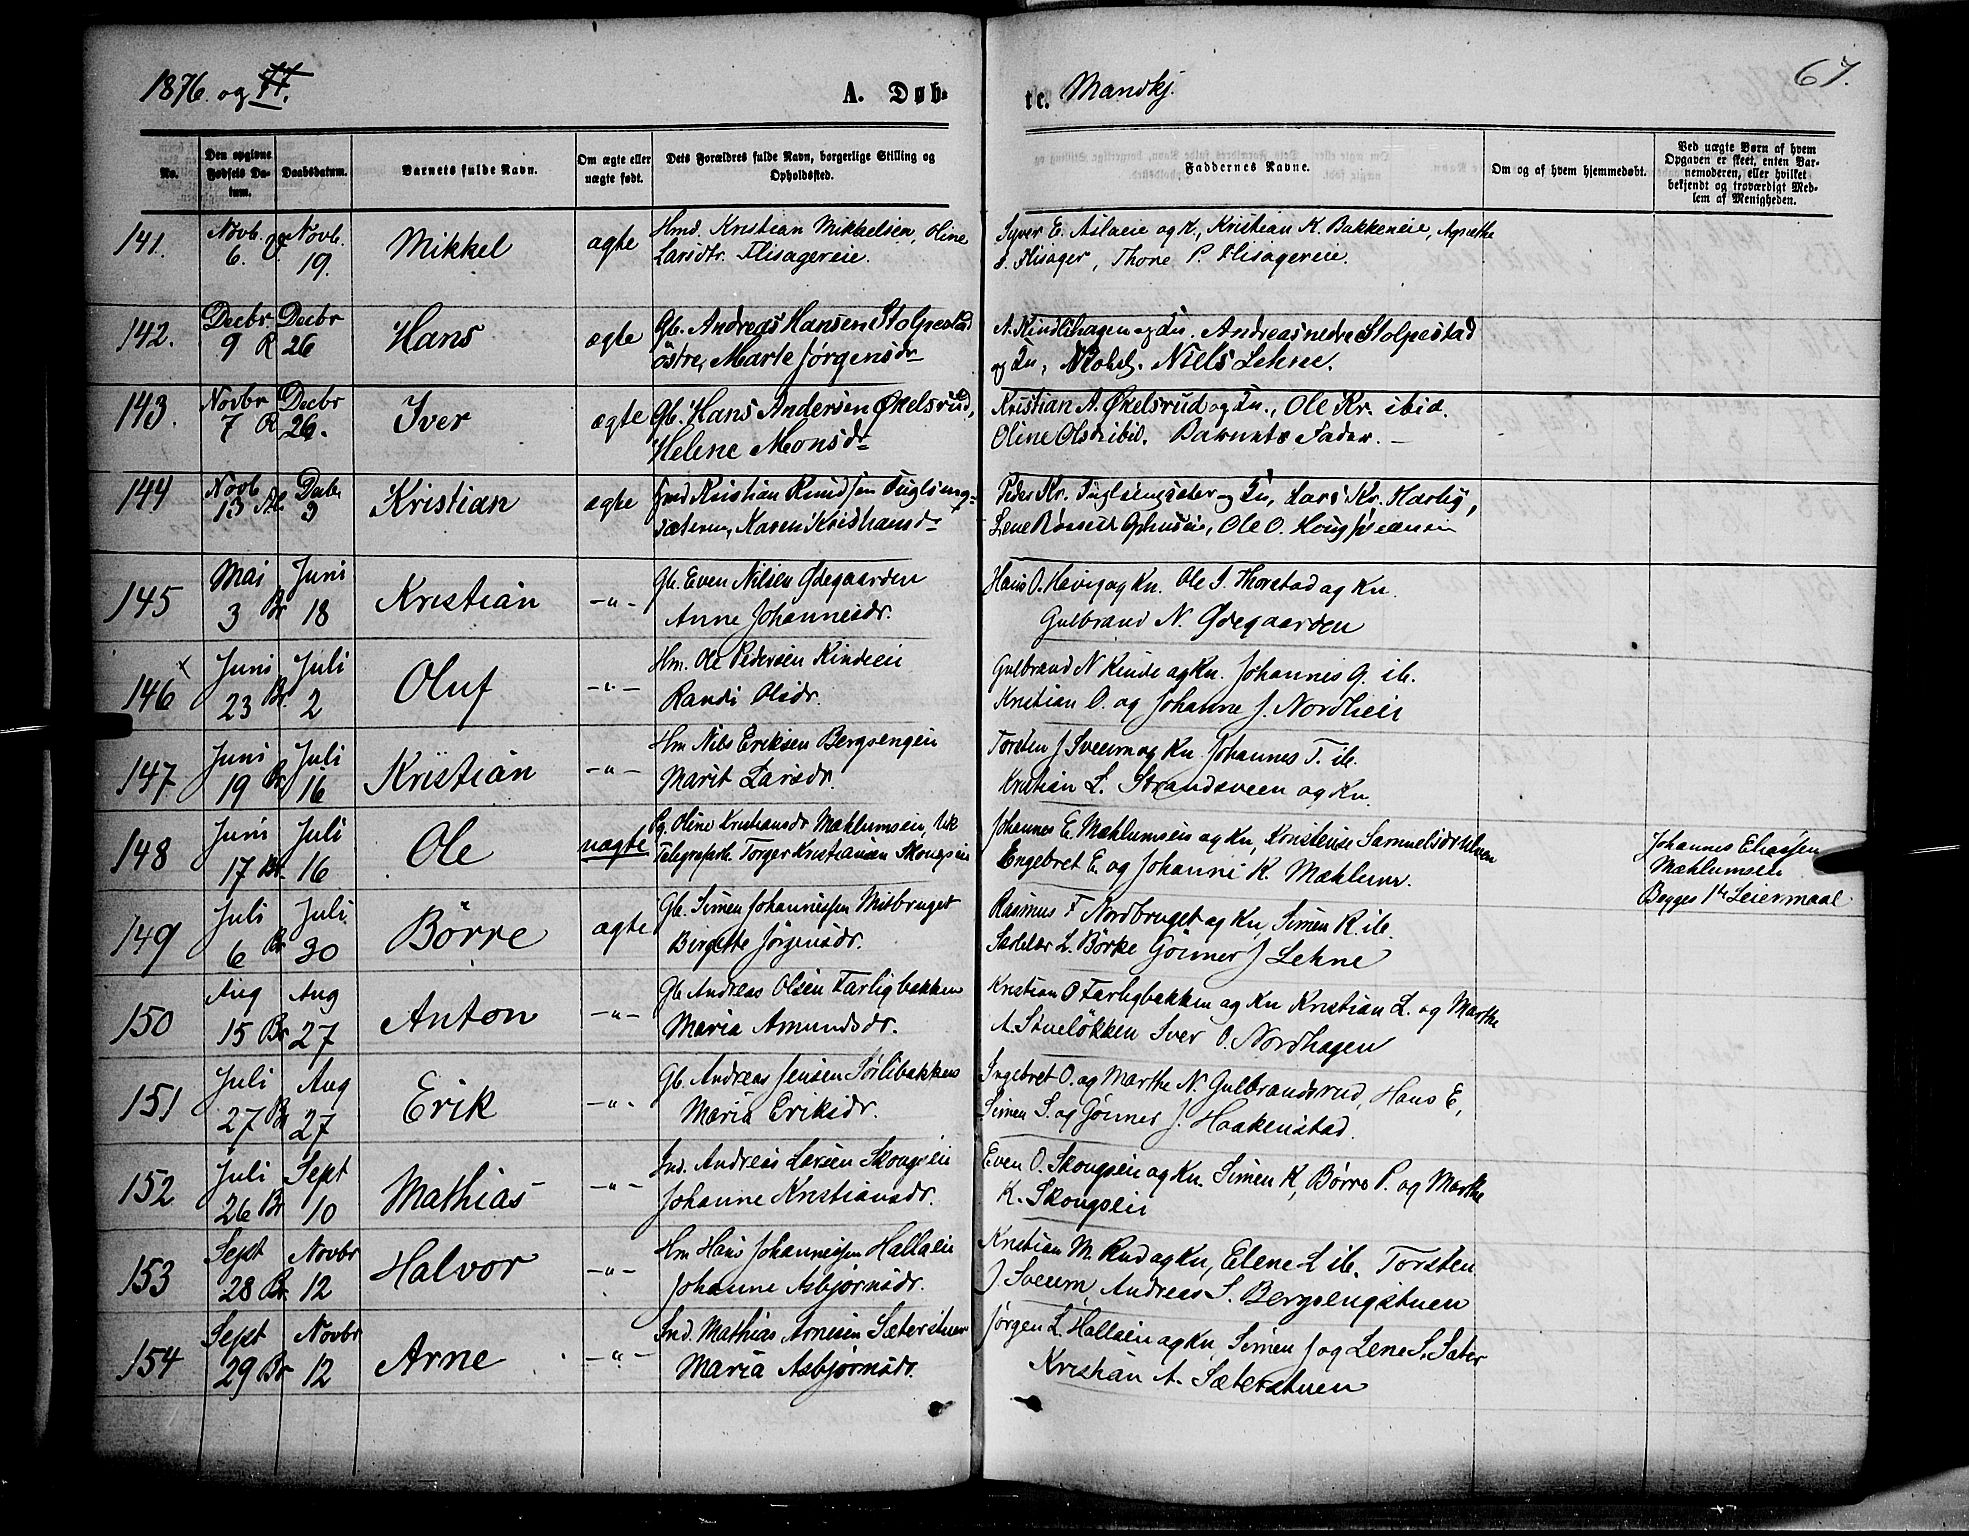 1876. og 77.
A. Døb-
te. Mandkj.
67.
No.
Den opgivne Fødsels Datum.
Daabsdatum.
Barnets fulde Navn.
Om ægte eller uægte født.
Dets Forældres fulde Navn, borgerlige Stilling og Opholdssted.
Faddernes Navne.
Om og af hvem hjemmedøbt.
Ved uægte Børn af hvem Opgaven er skeet, enten Barnemoderen, eller hvilket bekjendt og troværdigt Medlem af Menigheden.
141. Novb. 6. V. Novb. 19. Mikkel ægte Hmd. Kristian Mikkelsen, Oline
Larsdtr. Flisagereie.
Syver E. Aslaeie og K., Kristian K. Bakkeneie, Agnethe
Flisager, Thore P. Flisagereie.
142. Decbr 9 R Decbr 26 Hans ægte Gb. Andreas Hansen Stolpestad
östre, Marte Jørgensdr
A. Kindlihagen og Kn. Andreas nedre Stolpestad
og Kn, Niels Lehne.
143. Novbr 7 R Decbr 26. Iver ægte Gb. Hans Andersen Økelsrud,
Helene Monsdr
Kristian A. Økelsrud og Kn., Ole Kr. ibid.
Oline Olsdr ibid. Barnets Fader. —
144 Novb 13 Decbr 3 Kristian ægte Ind Kristian Knudsen Fuglseng-
sæteren, Karen Kristiansdr
Peder Kr. Fuglsengsæter og Kn, Lars Kr. Harby,
Ole O. Houg
145 Mai 3 Br Juni 18 Kristian —"— Gb. Even Nilsen Ødegaarden
Anne Johannesdr.
Hans O. Hevig og Kn. Ole J. Thorstad og Kn.
Gulbrand N. Ødegaarden
146 x Juni 23 Br. Juli 2 Oluf —"— Hm. Ole Pedersen Kindeeie
Randi Olsdr.
Gulbrand N Kinde og Kn. Johannes G. ib.
Kristian O. og Johanne J. Nordlieie
147 Juni 19 Br Juli 16 Kristian —"— Hm Nils Eriksen Bergsengeie
Marit Larsdr.
Torsten J Sveum og Kn. Johannes T. ib.
Kristian L. Strandsveen og Kn.
148 Juni 17 Br. Juli 16 Ole uægte Pg. Oline Kristiansdr Mæhlumseie, Uk
Telegrafarb. Torger Kristiansen Skougseie
Johannes E. Mæhlumseie og Kn, Kristense Samuelsdr Ulven
Engebret E. og Johanne K. Mæhlum.
Johannes Eliassen
Mæhlumseie
Begges 1ste Leiermaal
149 Juli 6 Br Juli 30 Börre ægte Gb. Simen Johannessen Mitbruget
Birgitte Jörgensdr.
Rasmus F Nordbruget og Kn, Simen R. ib.
L. Börke Göuner J Lehne
150 Aug 15 Br Aug 27 Anton —"— Gb Andreas Olsen Farligbakken
Maria Amundsdr.
Kristian O Farligbakken og Kn Kristian L. og Marthe
A. Stuelökken Iver O. Nordhagen
151 Juli 27 Br Aug 27 Erik —"— Gb. Andreas Jensen Sørlibakken
Maria Eriksdr.
Ingebret O. og Marthe N. Gulbrandsrud, Hans E,
Simen S. og Göuner J. Haakenstad.
152 Juli 26 Br Sept 10 Mathias —"— Ind. Andreas Larsen Skougseie
Johanne Kristiansdr.
Even O. Skougseie og Kn. Simen K, Børre P. og Marthe
K. Skougseie
153 Sept 28 Br. Novbr 12 Halvor —"— Hm Hans Johannessen Hallaeie
Johanne Asbjørnsdr.
Kristian M. Rud og Kn, Elene L ib. Torsten
J Sveum, Andreas S. Bergsengstuen
154 Sept 29 Br Novbr 12 Arne —"— Ind. Mathias Arnesen Sæterstuen
Maria Asbjørnsdr.
Jørgen L. Hallaeie og Kn, Simen J og Lene S. Sæter
Kristian A. Sæterstuen